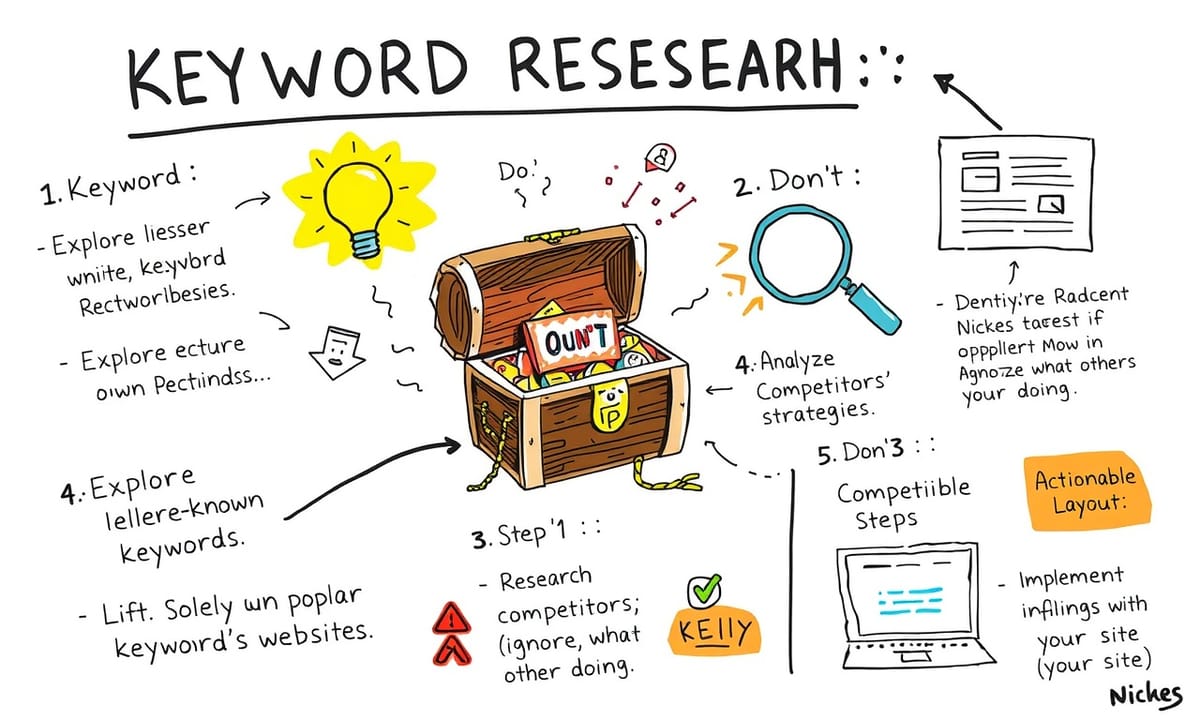 KEYWORD RESESEARH:∵
1. Keyword :
- Explore liesser
wniite, keyvbrd
Rectworlbesies.
- Explore ecture
oıwn Pectiindss...
4.· Explore
lellere-known
keywords.
- Lift. Solely wn poplar
keywoırd's websites.
Do:'
OUN'T
3. Step '1 : :
- Research
competitors;
(ignore, what
other doing.
KEllY
2. Don't :
4.· Analyze
Competitors'
strategies.
- Dentiy:'re Radcent
Nickes tarest if
opppllert Mow in
Agnoze what others
your doing.
5. Don'3 : :
Competiible
Steps
Actionable
Layout:
- Implement
inflings with
your site
(your site)
Nickes